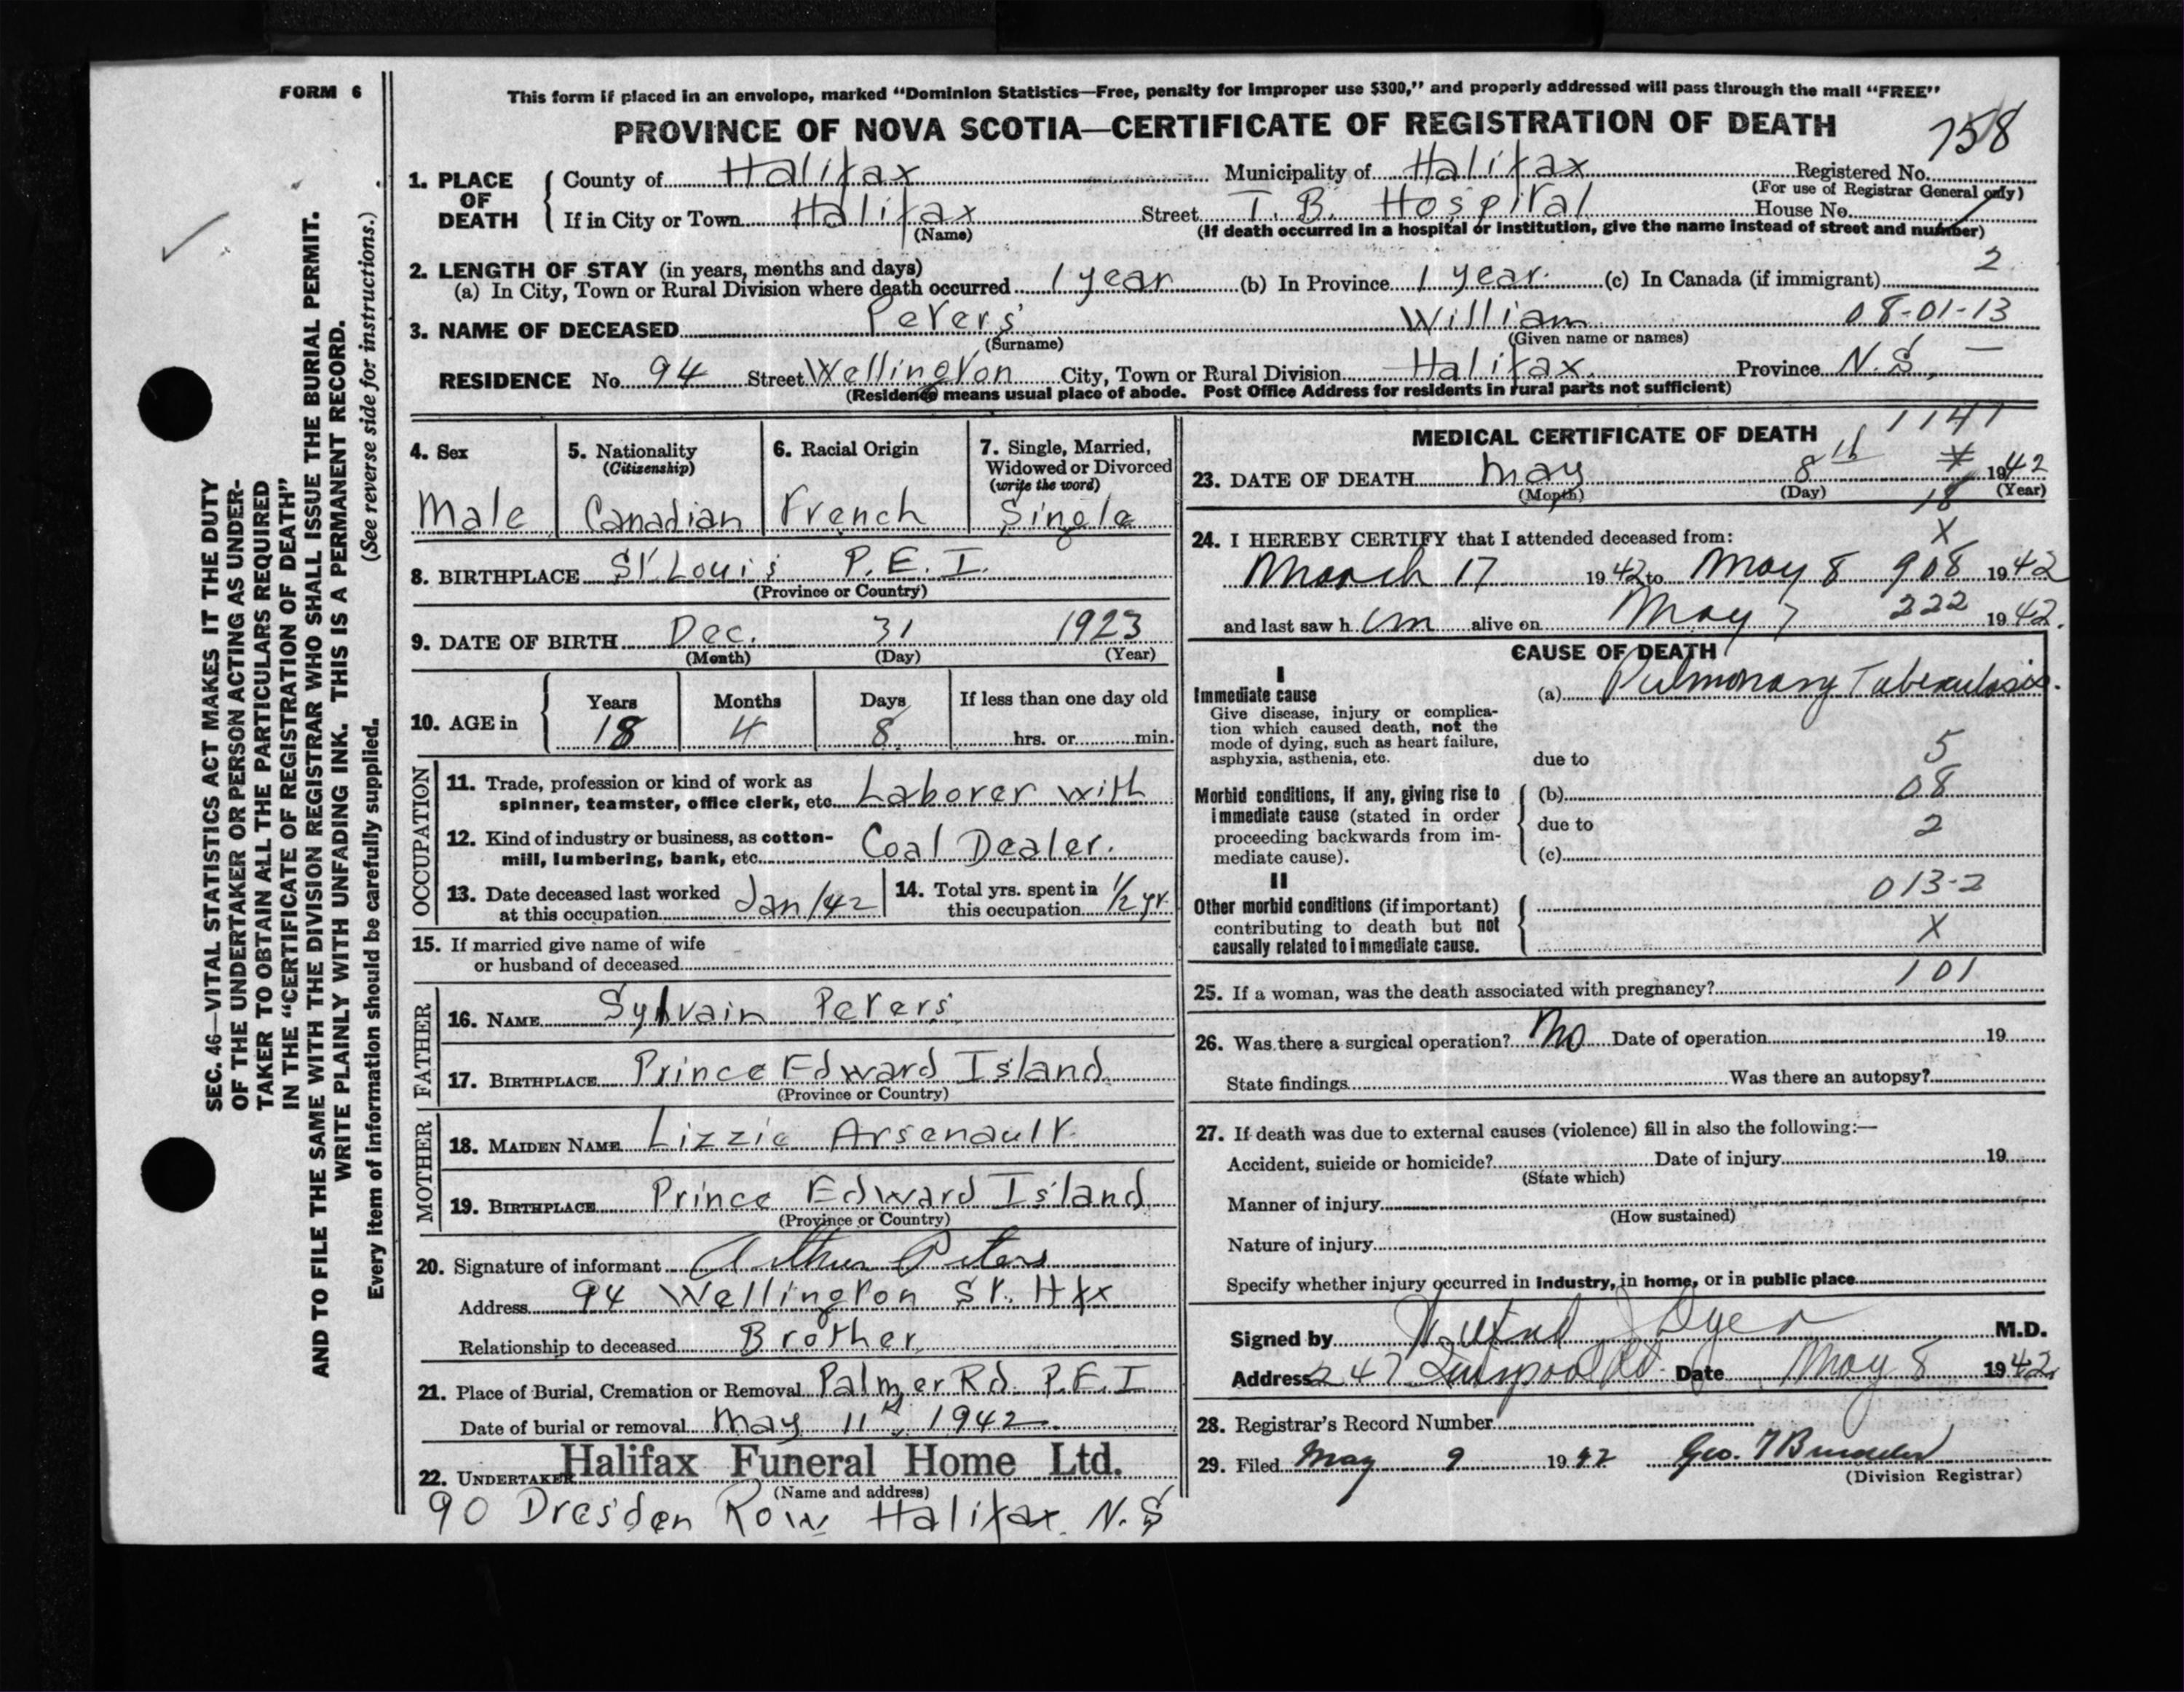 FORM 6
This form if placed in an envelope, marked “Dominion Statistics—Free, penalty for improper use $300,” and properly addressed will pass through the mail “FREE”
PROVINCE OF NOVA SCOTIA—CERTIFICATE OF REGISTRATION OF DEATH
758
1. PLACE OF DEATH
County of Halifax Municipality of Halifax Registered No.
(For use of Registrar General only)
If in City or Town Halifax Street T. B. Hospital House No.
(Name) (If death occurred in a hospital or institution, give the name instead of street and number)
2. LENGTH OF STAY (in years, months and days)
(a) In City, Town or Rural Division where death occurred 1 year (b) In Province 1 year. (c) In Canada (if immigrant) 2
3. NAME OF DECEASED Peters William 08-01-13
(Surname) (Given name or names)
RESIDENCE No. 94 Street Wellington City, Town or Rural Division Halifax. Province N.S, —
(Residence means usual place of abode. Post Office Address for residents in rural parts not sufficient)
SEC. 46—VITAL STATISTICS ACT MAKES IT THE DUTY
OF THE UNDERTAKER OR PERSON ACTING AS UNDER-
TAKER TO OBTAIN ALL THE PARTICULARS REQUIRED
IN THE “CERTIFICATE OF REGISTRATION OF DEATH”
AND TO FILE THE SAME WITH THE DIVISION REGISTRAR WHO SHALL ISSUE THE BURIAL PERMIT.
WRITE PLAINLY WITH UNFADING INK. THIS IS A PERMANENT RECORD.
Every item of information should be carefully supplied. (See reverse side for instructions.)
4. Sex
Male
5. Nationality
(Citizenship)
Canadian
6. Racial Origin
French
7. Single, Married,
Widowed or Divorced
(write the word)
Single
8. BIRTHPLACE St. Louis P.E.I.
(Province or Country)
9. DATE OF BIRTH Dec. 31 1923
(Month) (Day) (Year)
10. AGE in
Years Months Days If less than one day old
18 4 8 hrs. or min.
OCCUPATION
11. Trade, profession or kind of work as
spinner, teamster, office clerk, etc. Laborer with
12. Kind of industry or business, as cotton-
mill, lumbering, bank, etc. Coal Dealer.
13. Date deceased last worked
at this occupation Jan/42
14. Total yrs. spent in
this occupation 1/2 yr.
15. If married give name of wife
or husband of deceased
FATHER
16. NAME Sylvain Peters
17. BIRTHPLACE Prince Edward Island
(Province or Country)
MOTHER
18. MAIDEN NAME Lizzie Arsenault
19. BIRTHPLACE Prince Edward Island
(Province or Country)
20. Signature of informant Arthur Peters
Address 94 Wellington St. Hfx
Relationship to deceased Brother
21. Place of Burial, Cremation or Removal Palmer Rd. P.E.I
Date of burial or removal May 11th, 1942
22. UNDERTAKER Halifax Funeral Home Ltd.
(Name and address)
90 Dresden Row Halifax N.S
MEDICAL CERTIFICATE OF DEATH
1141
23. DATE OF DEATH May 8th 1942
(Month) (Day) (Year)
18
24. I HEREBY CERTIFY that I attended deceased from: X
March 17 1942 to May 8 908 1942
and last saw h im alive on May 7 222 1942.
CAUSE OF DEATH
I
Immediate cause
Give disease, injury or complica-
tion which caused death, not the
mode of dying, such as heart failure,
asphyxia, asthenia, etc.
(a) Pulmonary Tuberculosis.
due to 5
Morbid conditions, if any, giving rise to
immediate cause (stated in order
proceeding backwards from im-
mediate cause).
(b) 08
due to 2
(c)
II
Other morbid conditions (if important)
contributing to death but not
causally related to immediate cause.
013-2
X
101
25. If a woman, was the death associated with pregnancy?
26. Was there a surgical operation? No Date of operation 19
State findings Was there an autopsy?
27. If death was due to external causes (violence) fill in also the following:—
Accident, suicide or homicide? Date of injury 19
(State which)
Manner of injury
(How sustained)
Nature of injury
Specify whether injury occurred in industry, in home, or in public place
Signed by M.D.
Address 247 Date May 8 1942
28. Registrar's Record Number
29. Filed May 9 1942 Geo.
(Division Registrar)